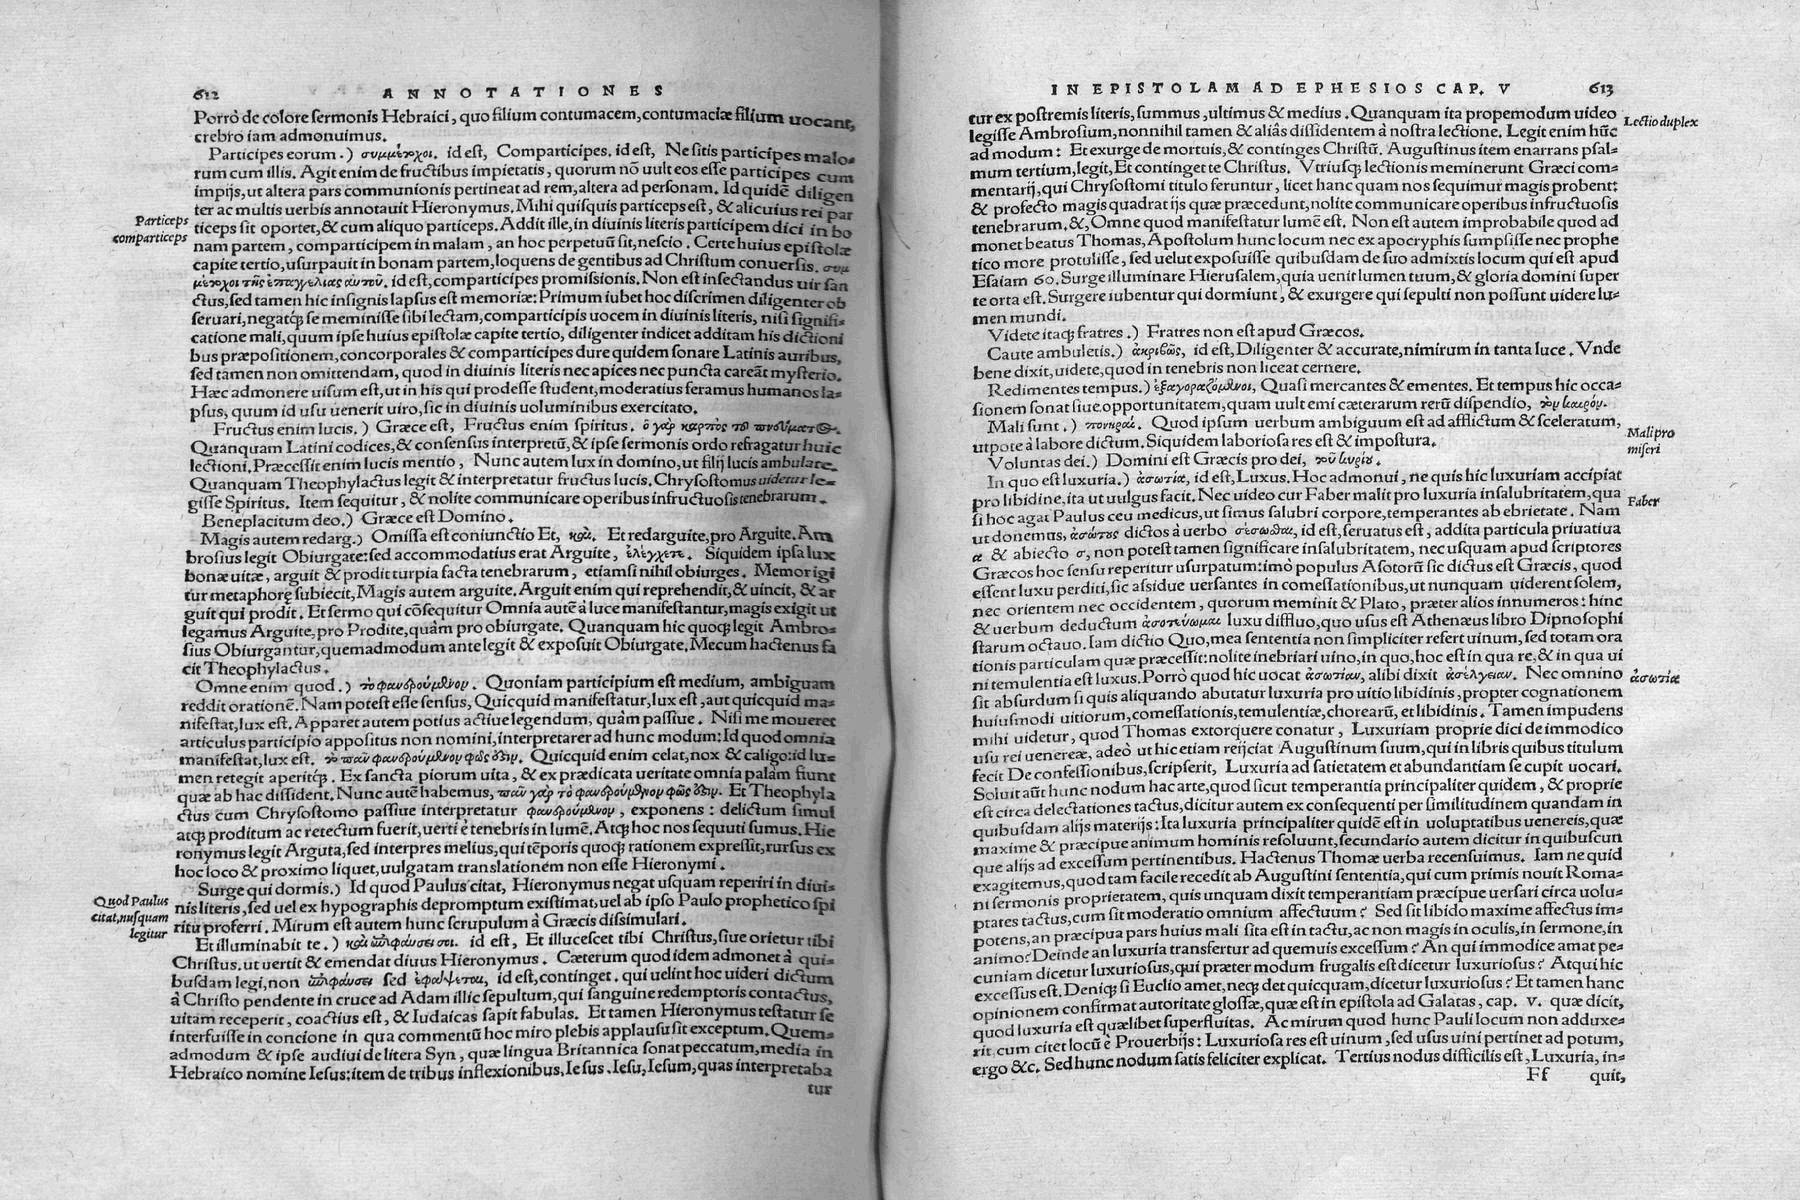 612 ANNOTATIONES
Porrò de colore sermonis Hebraici, quo filium contumacem, contumaciæ filium uocant,
crebro iam admonuimus.
Participes eorum.) συμμέτοχοι. id est, Comparticipes. id est, Ne sitis participes malo-
rum cum illis. Agit enim de fructibus impietatis, quorum nō uult eos esse participes cum
impijs, ut altera pars communionis pertineat ad rem, altera ad personam. Id quidē diligen
ter ac multis uerbis annotauit Hieronymus. Mihi quisquis particeps est, & alicuius rei par
Particeps
comparticeps
ticeps sit oportet, & cum aliquo particeps. Addit ille, in diuinis literis participem dici in bo
nam partem, comparticipem in malam, an hoc perpetuū sit, nescio. Certe huius epistolæ
capite tertio, usurpauit in bonam partem, loquens de gentibus ad Christum conuersis. συμ
μέτοχοι τῆς ἐπαγγελίας αὐτοῦ. id est, comparticipes promissionis. Non est insectandus uir san
ctus, sed tamen hic insignis lapsus est memoriæ: Primum iubet hoc discrimen diligenter ob
seruari, negatq́ se meminisse sibi lectam, comparticipis uocem in diuinis literis, nisi signifi-
catione mali, quum ipse huius epistolæ capite tertio, diligenter indicet additam his dictioni
bus præpositionem, concorporales & comparticipes dure quidem sonare Latinis auribus,
sed tamen non omittendam, quod in diuinis literis nec apices nec puncta careāt mysterio.
Hæc admonere uisum est, ut in his qui prodesse student, moderatius feramus humanos la-
psus, quum id usu uenerit uiro, sic in diuinis uoluminibus exercitato.
Fructus enim lucis.) Græce est, Fructus enim spiritus. ὁ γὰρ καρπὸς τοῦ πνεύματος.
Quanquam Latini codices, & consensus interpretū, & ipse sermonis ordo refragatur huic
lectioni. Præcessit enim lucis mentio, Nunc autem lux in domino, ut filij lucis ambulate.
Quanquam Theophylactus legit & interpretatur fructus lucis. Chrysostomus uidetur le-
gisse Spiritus. Item sequitur, & nolite communicare operibus infructuosis tenebrarum.
Beneplacitum deo.) Græce est Domino.
Magis autem redarg.) Omissa est coniunctio Et, καὶ. Et redarguite, pro Arguite. Am
brosius legit Obiurgate: sed accommodatius erat Arguite, ἐλέγχετε. Siquidem ipsa lux
bonæ uitæ, arguit & prodit turpia facta tenebrarum, etiamsi nihil obiurges. Memor igi
tur metaphorę subiecit, Magis autem arguite. Arguit enim qui reprehendit, & uincit, & ar
guit qui prodit. Et sermo qui cōsequitur Omnia autē à luce manifestantur, magis exigit ut
legamus Arguite, pro Prodite, quàm pro obiurgate. Quanquam hic quoq́ legit Ambro-
sius Obiurgantur, quemadmodum ante legit & exposuit Obiurgate. Mecum hactenus fa
cit Theophylactus.
Omne enim quod.) τὸ φανερούμενον. Quoniam participium est medium, ambiguam
reddit orationē. Nam potest esse sensus, Quicquid manifestatur, lux est, aut quicquid ma-
nifestat, lux est. Apparet autem potius actiue legendum, quàm passiue. Nisi me moueret
articulus participio appositus non nomini, interpretarer ad hunc modum: Id quod omnia
manifestat, lux est. τὸ πᾶν φανερούμενον φῶς ὄζιν. Quicquid enim celat, nox & caligo: id lu-
men retegit aperitq́. Ex sancta piorum uita, & ex prædicata ueritate omnia palàm fiunt
quæ ab hac dissident. Nunc autē habemus, πᾶν γὰρ τὸ φανερούμενον φῶς ὄζιν. Et Theophyla
ctus cum Chrysostomo passiue interpretatur φανερούμενον, exponens: delictum simul
atq́ proditum ac retectum fuerit, uerti è tenebris in lumē. Atq́ hoc nos sequuti sumus. Hie
ronymus legit Arguta, sed interpres melius, qui tēporis quoq́ rationem expressit, rursus ex
hoc loco & proximo liquet, uulgatam translationem non esse Hieronymi.
Surge qui dormis.) Id quod Paulus citat, Hieronymus negat usquam reperiri in diui-
Quod Paulus
citat, nusquam
legitur
nis literis, sed uel ex hypographis depromptum existimat, uel ab ipso Paulo prophetico spi
ritu proferri. Mirum est autem hunc scrupulum à Græcis dissimulari.
Et illuminabit te.) καὶ ἐπιφαύσει σοι. id est, Et illucescet tibi Christus, siue orietur tibi
Christus. ut uertit & emendat diuus Hieronymus. Cæterum quod idem admonet à qui-
busdam legi, non ἐπιφαύσει sed ἐφάψεται, id est, continget. qui uelint hoc uideri dictum
à Christo pendente in cruce ad Adam illic sepultum, qui sanguine redemptoris contactus,
uitam receperit, coactius est, & Iudaicas sapit fabulas. Et tamen Hieronymus testatur se
interfuisse in concione in qua commentū hoc miro plebis applausu sit exceptum. Quem-
admodum & ipse audiui de litera Syn, quæ lingua Britannica sonat peccatum, media in
Hebraico nomine Iesus: item de tribus inflexionibus, Iesus. Iesu, Iesum, quas interpretaba
tur
IN EPISTOLAM AD EPHESIOS CAP. V 613
tur ex postremis literis, summus, ultimus & medius. Quanquam ita propemodum uideo
Lectio duplex
legisse Ambrosium, nonnihil tamen & aliâs dissidentem à nostra lectione. Legit enim hūc
ad modum: Et exurge de mortuis, & continges Christū. Augustinus item enarrans psal-
mum tertium, legit, Et continget te Christus. Vtriusq́ lectionis meminerunt Græci com-
mentarij, qui Chrysostomi titulo feruntur, licet hanc quam nos sequimur magis probent:
& profecto magis quadrat ijs quæ præcedunt, nolite communicare operibus infructuosis
tenebrarum, &, Omne quod manifestatur lumē est. Non est autem improbabile quod ad
monet beatus Thomas, Apostolum hunc locum nec ex apocryphis sumpsisse nec prophe
tico more protulisse, sed uelut exposuisse quibusdam de suo admixtis locum qui est apud
Esaiam 60. Surge illuminare Hierusalem, quia uenit lumen tuum, & gloria domini super
te orta est. Surgere iubentur qui dormiunt, & exurgere qui sepulti non possunt uidere lu-
men mundi.
Videte itaq́ fratres.) Fratres non est apud Græcos.
Caute ambuletis.) ἀκριβῶς, id est, Diligenter & accurate, nimirum in tanta luce. Vnde
bene dixit, uidete, quod in tenebris non liceat cernere.
Redimentes tempus.) ἐξαγοραζόμενοι, Quasi mercantes & ementes. Et tempus hic occa-
sionem sonat siue opportunitatem, quam uult emi cæterarum rerū dispendio, τὸν καιρόν.
Mali sunt.) πονηραί. Quod ipsum uerbum ambiguum est ad afflictum & sceleratum,
Mali pro
miseri
utpote à labore dictum. Siquidem laboriosa res est & impostura.
Voluntas dei.) Domini est Græcis pro dei, τοῦ κυρίου.
In quo est luxuria.) ἀσωτία, id est, Luxus. Hoc admonui, ne quis hic luxuriam accipiat
pro libidine, ita ut uulgus facit. Nec uideo cur Faber malit pro luxuria insalubritatem, qua
Faber
si hoc agat Paulus ceu medicus, ut simus salubri corpore, temperantes ab ebrietate. Nam
ut donemus, ἀσώτους dictos à uerbo σέσωσθαι, id est, seruatus est, addita particula priuatiua
α & abiecto σ, non potest tamen significare insalubritatem, nec usquam apud scriptores
Græcos hoc sensu reperitur usurpatum: imò populus Asotorū sic dictus est Græcis, quod
essent luxu perditi, sic assidue uersantes in comessationibus, ut nunquam uiderent solem,
nec orientem nec occidentem, quorum meminit & Plato, præter alios innumeros: hinc
& uerbum deductum ἀσωτεύομαι luxu diffluo, quo usus est Athenæus libro Dipnosophi
starum octauo. Iam dictio Quo, mea sententia non simpliciter refert uinum, sed totam ora
tionis particulam quæ præcessit: nolite inebriari uino, in quo, hoc est in qua re, & in qua ui
ni temulentia est luxus. Porrò quod hic uocat ἀσωτίαν, alibi dixit ἀσέλγειαν. Nec omnino
ἀσωτία
sit absurdum si quis aliquando abutatur luxuria pro uitio libidinis, propter cognationem
huiusmodi uitiorum, comessationis, temulentiæ, chorearū, et libidinis. Tamen impudens
mihi uidetur, quod Thomas extorquere conatur, Luxuriam proprie dici de immodico
usu rei uenereæ, adeò ut hic etiam reijciat Augustinum suum, qui in libris quibus titulum
fecit De confessionibus, scripserit, Luxuria ad satietatem et abundantiam se cupit uocari.
Soluit aūt hunc nodum hac arte, quod sicut temperantia principaliter quidem, & proprie
est circa delectationes tactus, dicitur autem ex consequenti per similitudinem quandam in
quibusdam alijs materijs: Ita luxuria principaliter quidē est in uoluptatibus uenereis, quæ
maxime & præcipue animum hominis resoluunt, secundario autem dicitur in quibuscun
que alijs ad excessum pertinentibus. Hactenus Thomæ uerba recensuimus. Iam ne quid
exagitemus, quod tam facile recedit ab Augustini sententia, qui cum primis nouit Roma-
ni sermonis proprietatem, quis unquam dixit temperantiam præcipue uersari circa uolu-
ptates tactus, cum sit moderatio omnium affectuum? Sed sit libido maxime affectus im-
potens, an præcipua pars huius mali sita est in tactu, ac non magis in oculis, in sermone, in
animo? Deinde an luxuria transfertur ad quemuis excessum? An qui immodice amat pe-
cuniam dicetur luxuriosus, qui præter modum frugalis est dicetur luxuriosus? Atqui hic
excessus est. Deniq́ si Euclio amet, neq́ det quicquam, dicetur luxuriosus? Et tamen hanc
opinionem confirmat autoritate glossæ, quæ est in epistola ad Galatas, cap. v. quæ dicit,
quod luxuria est quælibet superfluitas. Ac mirum quod hunc Pauli locum non adduxe-
rit cum citet locū è Prouerbijs: Luxuriosa res est uinum, sed usus uini pertinet ad potum,
ergo &c. Sed hunc nodum satis feliciter explicat. Tertius nodus difficilis est, Luxuria, in-
Ff quit,